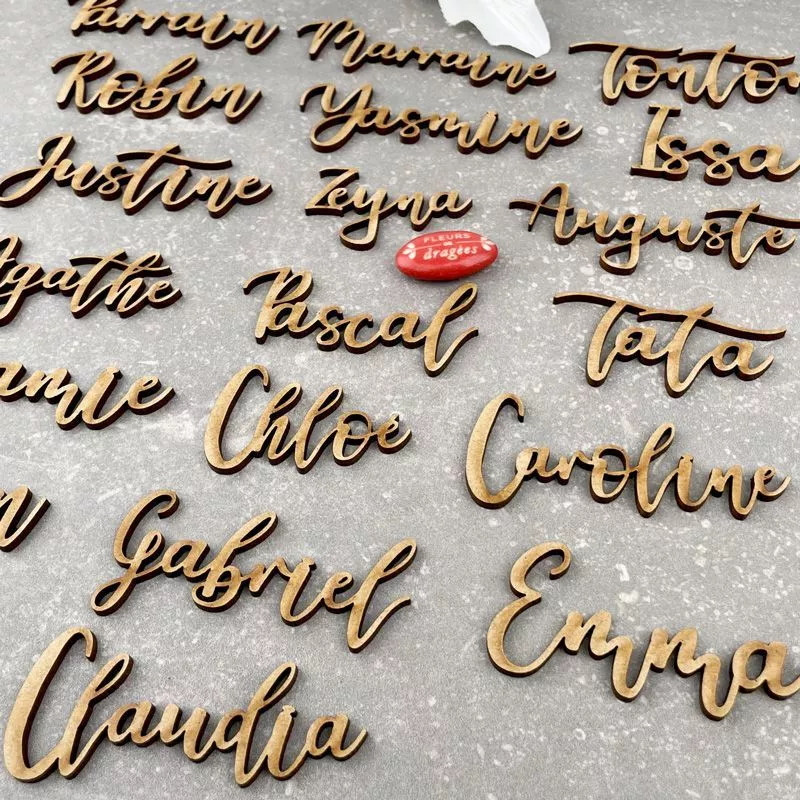 Parrain
Marraine
Tonton
Robin
Yasmine
Issa
Justine
Zeyna
Auguste
FLEURS
en
dragées
Agathe
Pascal
Tata
amie
Chloé
Caroline
n
Gabriel
Emma
Claudia